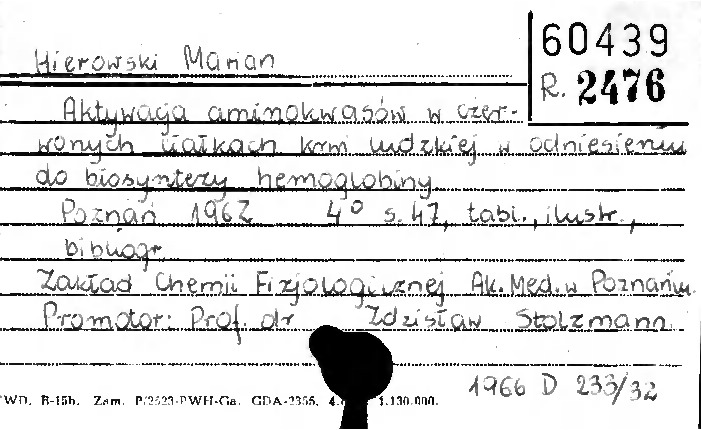 60439
R. 2476
Hierowski Marian
Aktywacja aminokwasów w czer-
wonych ciałkach krwi ludzkiej w odniesieniu
do biosyntezy hemoglobiny.
Poznań 1962 4° s. 47, tabl., ilustr.,
bibliogr.
Zakład Chemii Fizjologicznej Ak. Med. w Poznaniu.
Promotor: Prof. dr Zdzisław Stolzmann
1966 D 233/32
CWD, B-15b. Zam. P/2523-PWH-Ga. GDA-2355. 1.130.000.